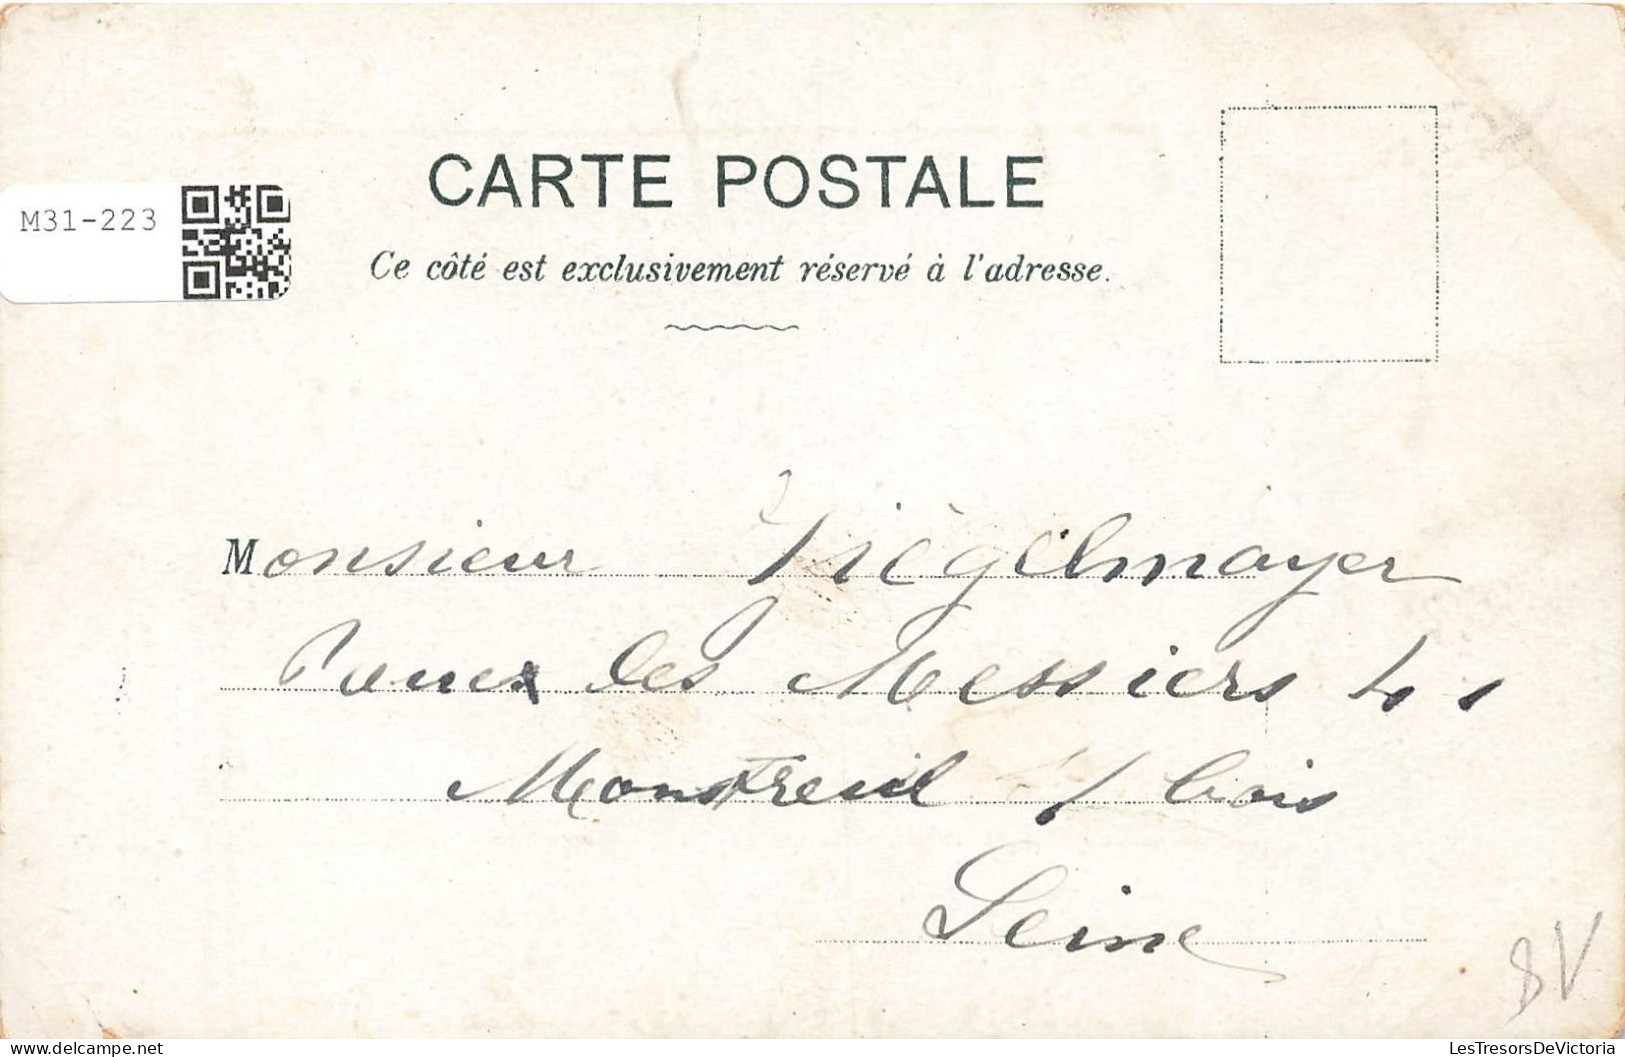 M31-223
CARTE POSTALE
Ce côté est exclusivement réservé à l'adresse.
Monsieur Viegelmayer
des Messiers 41
Montreuil s/ bois
Seine
8V
LesTresorsDeVictoria
https://www.delcampe.net